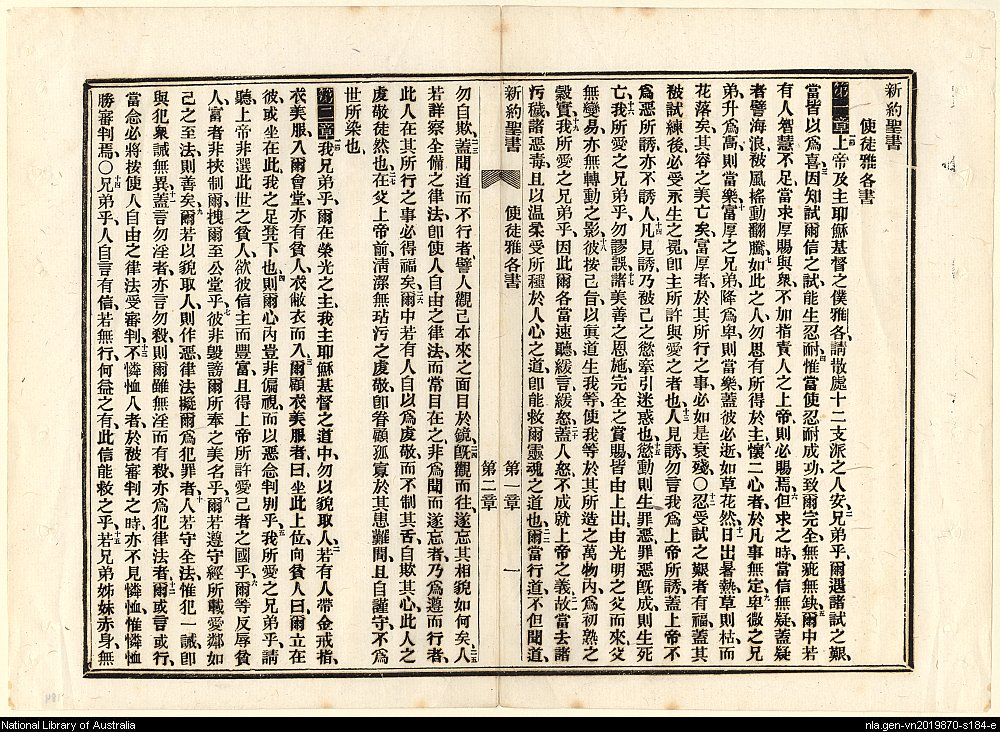 新約聖書
使徒雅各書
第一章 上帝及主耶穌基督之僕雅各、請散處十二支派之人安、兄弟乎、爾遇諸試之艱、
當皆以爲喜、因知試爾信之試、能生忍耐、惟當使忍耐成功、致爾完全無疵無缺、爾中若
有人智慧不足、當求厚賜與衆、不加指責人之上帝、則必賜焉、但求之時、當信無疑、蓋疑
者譬海浪被風搖動翻騰、如此之人、勿思有所得於主、懷二心者、於凡事無定、卑微之兄
弟升爲高、則當樂、富厚之兄弟、降爲卑、則當樂、蓋彼必逝、如草花然、日出暑熱、草則枯而
花落矣、其容之美亡矣、富厚者於其所行之事、必如是衰殘、〇忍受試之艱者有福、蓋其
被試練後、必受永生之冕、卽主所許與愛之者也、人見誘勿言我爲上帝所誘、蓋上帝不
爲惡所誘、亦不誘人、凡見誘、乃被己之慾牽引迷惑也、慾動則生罪惡、罪惡旣成則生死
亡、我所愛之兄弟乎、勿謬誤、諸美善之恩施、完全之賞賜、皆由上出、由光明之父而來、父
無變易、亦無轉動之影、彼按己旨、以眞道生我等、使我等於其所造之萬物內、爲初熟之
穀實、我所愛之兄弟乎、因此爾各當速聽、緩言、緩怒、蓋人怒不成就上帝之義、故當去諸
汚穢、諸惡毒、且以溫柔受所種於人心之道、卽能救爾靈魂之道也、爾當行道、不但聞道、
新約聖書 使徒雅各書 第一章 第二章 一
勿自欺、蓋聞道而不行者、譬人觀己本來之面目於鏡、旣觀而往、遂忘其相貌如何矣、人
若群察全備之律法、卽使人自由之律法、而常目在之、非爲聞而遂忘者、乃爲遵而行者、
此人在其所行之事、必得福矣、爾中若有人自以爲虔敬、而不制其舌、自欺其心、此人之
虔敬徒然也、在父上帝前、清潔無玷汚之虔敬、卽眷顧孤寡於其患難間、且自謹守不爲
世所染也、
第二章 我兄弟乎、爾在榮光之主、我主耶穌基督之道中、勿以貌取人、若有人帶金戒指、
衣美服、入爾會堂、亦有貧人衣敝衣而入、爾顧衣美服者曰、坐此上位、向貧人曰、爾立在
彼、或坐在此我之足凳下也、則爾心內豈非偏視、而以惡念判別乎、我所愛之兄弟乎、請
聽、上帝非選此世之貧人、欲彼信主而豐富、且得上帝所許愛己者之國乎、爾等反辱貧
人、富者非挾制爾、拽爾至公堂乎、彼非毀謗爾所奉之美名乎、爾若遵守經所載、愛鄰如
己之至法、則善矣、爾若以貌取人、則作惡、律法擬爾爲犯罪者、人若守全法、惟犯一誡、卽
與犯衆誡無異、蓋言勿淫者、亦言勿殺、則爾雖無淫而有殺、亦爲犯律法者、爾或言或行、
當念必將按使人自由之律法受審判、不憐恤人者、於被審判之時、亦不見憐恤、惟憐恤
勝審判焉、〇兄弟乎、人自言有信、若無行、何益之有、此信能救之乎、若兄弟姊妹赤身、無
National Library of Australia
nla.gen-vn2019870-s184-e